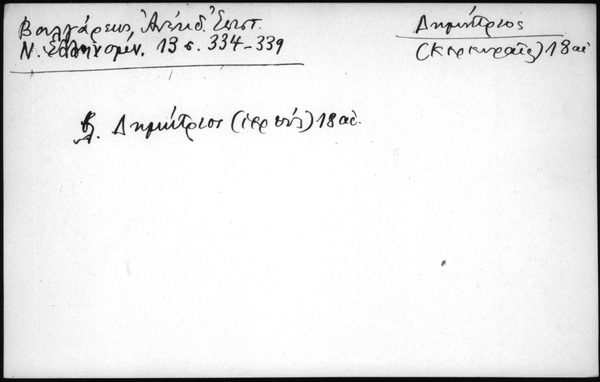 Βουλγάρεως, Ἀνέκδ. Ἐπιστ.
Ν. Ἑλληνομν. 13 σ. 334-339
Δημήτριος
(Κερκυραῖος) 18 αἰ
βλ. Δημήτριος (ἱερεύς) 18 αἰ.